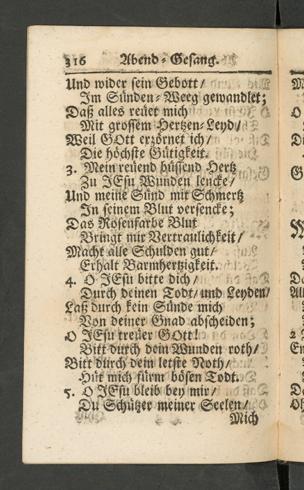 316 Abend-Gesang.
Und wider sein Gebott/
Im Sünden-Weeg gewandlet;
Daß alles reuet mich
Mit grossem Hertzen-Leyd/
Weil GOtt erzörnet ich/
Die höchste Gütigkeit.
3. Mein reuend büssend Hertz
Zu JEsu Wunden lencke/
Und meine Sünd mit Schmertz
In seinem Blut versencke;
Das Rosenfarbe Blut
Bringt mir Vertraulichkeit/
Macht alle Schulden gut/
Erhalt Barmhertzigkeit.
4. O JEsu bitte dich/
Durch deinen Todt/ und Leyden/
Laß durch kein Sünde mich
Von deiner Gnad abscheiden;
O JEsu treuer GOtt!
Bitt durch dein Wunden roth/
Bitt durch dein letste Noth/
Hüt mich fürm bösen Todt.
5. O JEsu bleib bey mir/
Du Schützer meiner Seelen/
Mich